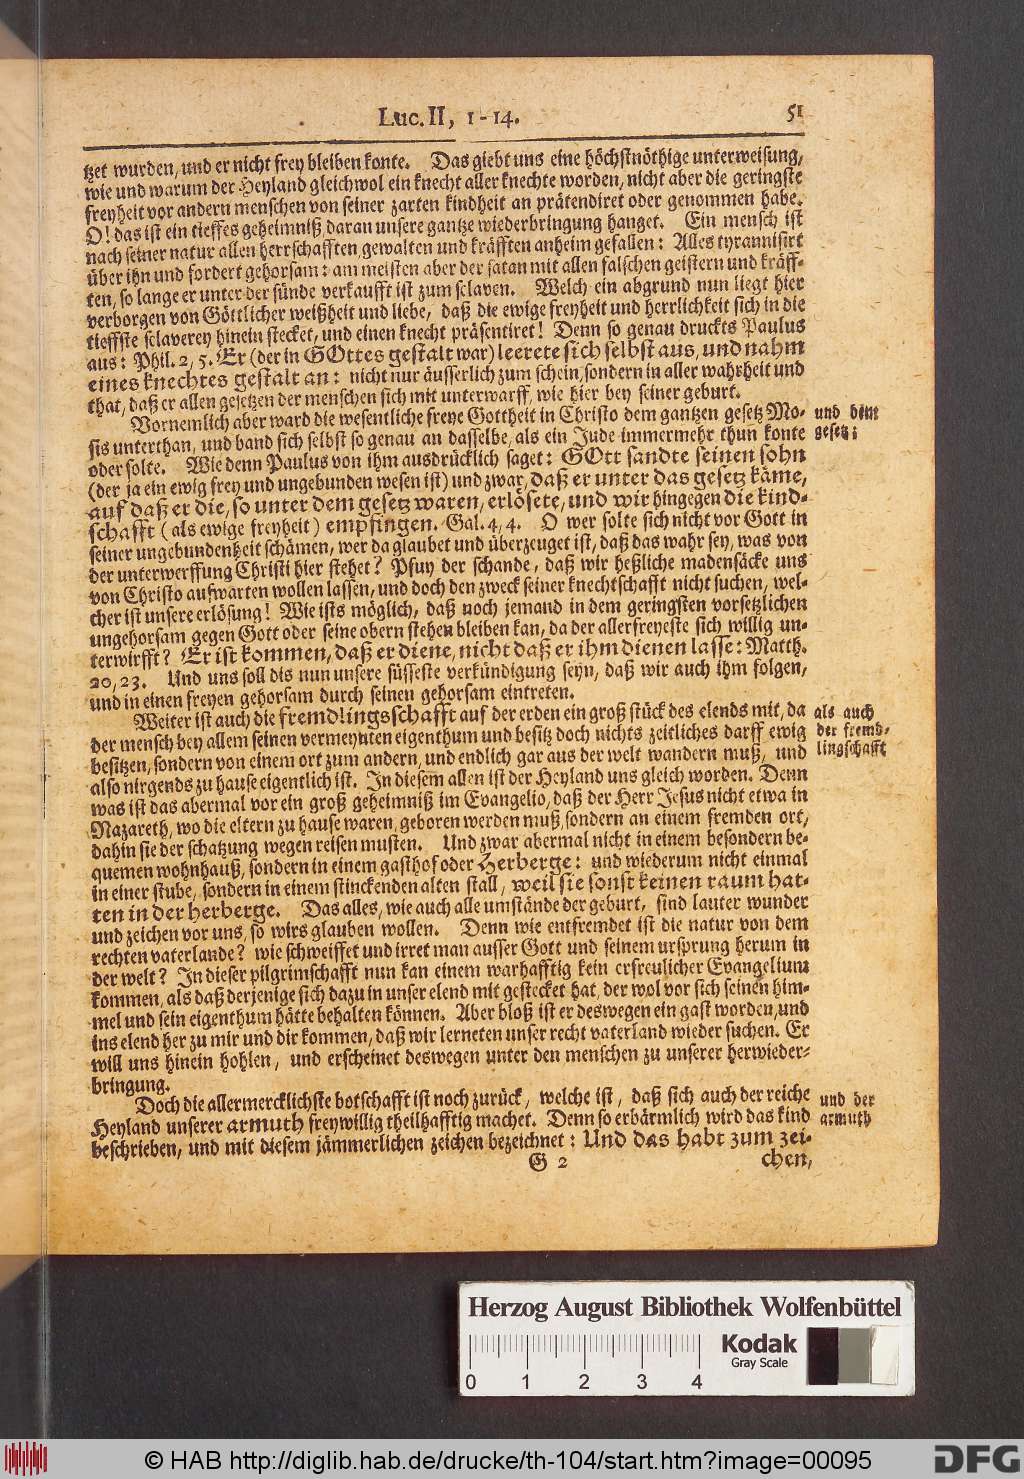 Luc. II, 1-14. 51
tzet wurden, und er nicht frey bleiben konte. Das giebt uns eine höchstnöthige unterweisung,
wie und warum der Heyland gleichwol ein knecht aller knechte worden, nicht aber die geringste
freyheit vor andern menschen von seiner zarten kindheit an prätendiret oder genommen habe.
O! das ist ein tieffes geheimniß, daran unsere gantze wiederbringung hanget. Ein mensch ist
nach seiner natur allen herrschafften, gewalten und kräfften anheim gefallen: Alles tyrannisirt
über ihn und fordert gehorsam: am meisten aber der satan mit allen falschen geistern und kräff-
ten, so lange er unter der sünde verkaufft ist zum sclaven. Welch ein abgrund nun liegt hier
verborgen von Göttlicher weißheit und liebe, daß die ewige freyheit und herrlichkeit sich in die
tieffste sclaverey hinein stecket, und einen knecht präsentiret! Denn so genau druckts Paulus
aus: Phil. 2, 5. Er (der in GOttes gestalt war) leerete sich selbst aus, und nahm
eines knechtes gestalt an: nicht nur äusserlich zum schein, sondern in aller wahrheit und
that, daß er allen gesetzen der menschen sich mit unterwarff, wie hier bey seiner geburt.
Vornemlich aber ward die wesentliche freye Gottheit in Christo dem gantzen gesetz Mo- und dem
sis unterthan, und band sich selbst so genau an dasselbe, als ein Jude immermehr thun konte gesetz:
oder solte. Wie denn Paulus von ihm ausdrücklich saget: GOtt sandte seinen sohn
(der ja ein ewig frey und ungebunden wesen ist) und zwar, daß er unter das gesetz käme,
auf daß er die, so unter dem gesetz waren, erlösete, und wir hingegen die kind-
schafft (als ewige freyheit) empfingen. Gal. 4, 4. O wer solte sich nicht vor Gott in
seiner ungebundenheit schämen, wer da glaubet und überzeuget ist, daß das wahr sey, was von
der unterwerffung Christi hier stehet? Pfuy der schande, daß wir heßliche madensäcke uns
von Christo aufwarten wollen lassen, und doch den zweck seiner knechtschafft nicht suchen, wel-
cher ist unsere erlösung! Wie ists möglich, daß noch jemand in dem geringsten vorsetzlichen
ungehorsam gegen Gott oder seine obern stehen bleiben kan, da der allerfreyeste sich willig un-
terwirfft? Er ist kommen, daß er diene, nicht daß er ihm dienen lasse: Matth.
20, 23. Und uns soll dis nun unsere süsseste verkündigung seyn, daß wir auch ihm folgen,
und in einen freyen gehorsam durch seinen gehorsam eintreten.
Weiter ist auch die fremdlingsschafft auf der erden ein groß stück des elends mit, da als auch
der mensch bey allem seinen vermeynten eigenthum und besitz doch nichts zeitliches darff ewig der fremd-
besitzen, sondern von einem ort zum andern, und endlich gar aus der welt wandern muß, und lingschafft
also nirgends zu hause eigentlich ist. In diesem allen ist der Heyland uns gleich worden. Denn
was ist das abermal vor ein groß geheimniß im Evangelio, daß der Herr Jesus nicht etwa in
Nazareth, wo die eltern zu hause waren, geboren werden muß, sondern an einem fremden ort,
dahin sie der schatzung wegen reisen musten. Und zwar abermal nicht in einem besondern be-
quemen wohnhauß, sondern in einem gasthof oder Herberge: und wiederum nicht einmal
in einer stube, sondern in einem stinckenden alten stall, weil sie sonst keinen raum hat-
ten in der herberge. Das alles, wie auch alle umstände der geburt, sind lauter wunder
und zeichen vor uns, so wirs glauben wollen. Denn wie entfremdet ist die natur von dem
rechten vaterlande? wie schweiffet und irret man ausser Gott und seinem ursprung herum in
der welt? In dieser pilgrimschafft nun kan einem warhafftig kein erfreulicher Evangelium
kommen, als daß derjenige sich dazu in unser elend mit gestecket hat, der wol vor sich seinen him-
mel und sein eigenthum hätte behalten können. Aber bloß ist er deswegen ein gast worden, und
ins elend her zu mir und dir kommen, daß wir lerneten unser recht vaterland wieder suchen. Er
will uns hinein hohlen, und erscheinet deswegen unter den menschen zu unserer herwieder-
bringung.
Doch die allermercklichste botschafft ist noch zurück, welche ist, daß sich auch der reiche und der
Heyland unserer armuth freywillig theilhafftig machet. Denn so erbärmlich wird das kind armuth
beschrieben, und mit diesem jämmerlichen zeichen bezeichnet: Und das habt zum zei-
G 2 chen,
Herzog August Bibliothek Wolfenbüttel
Kodak
Gray Scale
0 1 2 3 4
© HAB http://diglib.hab.de/drucke/th-104/start.htm?image=00095
DFG